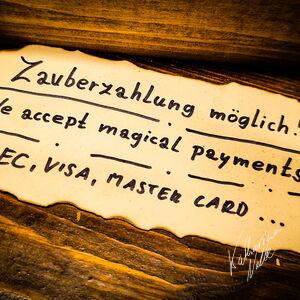 Zauberzahlung möglich!
We accept magical payments
EC, VISA, MASTER CARD ...